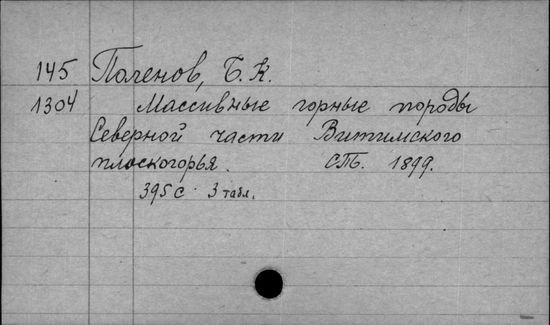 145 Поленов, Б. К.
1304 Массивные горные породы
Северной части Витимского
плоскогорья. СПб. 1899.
395 с. 3 табл.